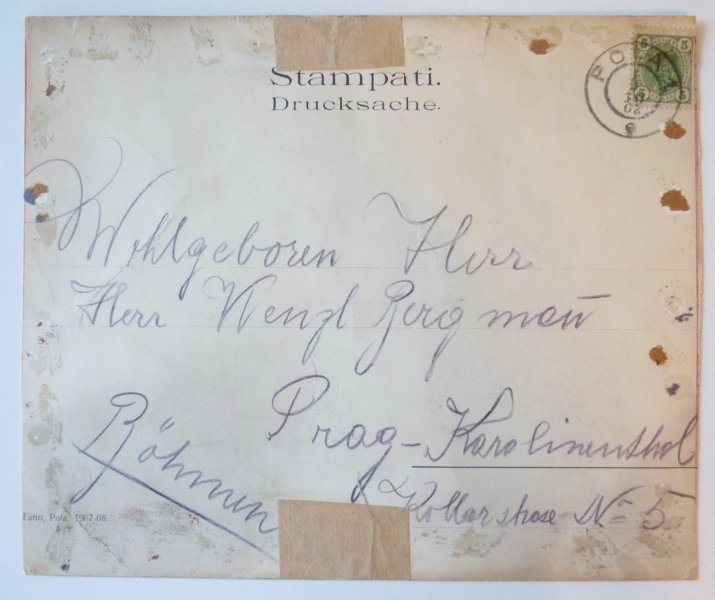 Stampati.
Drucksache.
POLA
5 5
5 5
Wohlgeboren Herr
Herr Wenzl Bergman̄
Prag-Karolinenthal
Böhmen
Kollarstrase No 5
Fano, Pola. 1907-08.